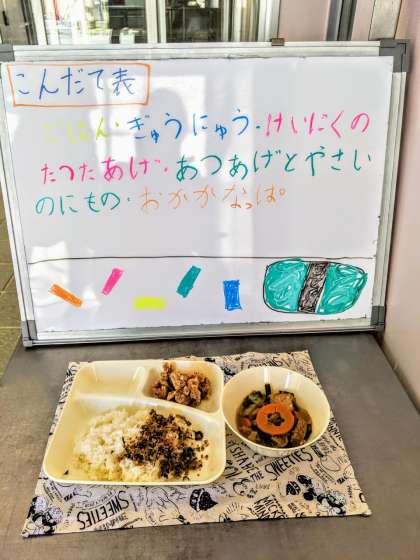 こんだて表
ごはん・ぎゅうにゅう・けいにくの
たつたあげ・あつあげとやさい
のにもの・おかかなっぱ。
SWEETIES